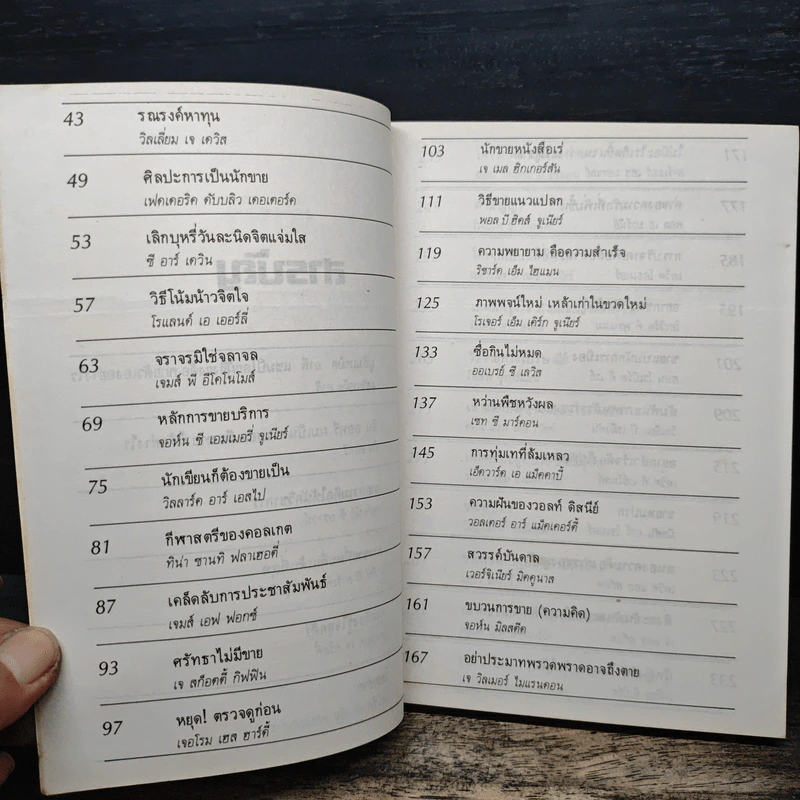 43 รณรงค์หาทุน
วิลเลี่ยม เจ เดวิส
49 ศิลปะการเป็นนักขาย
เฟดเดอริค ดับบลิว เดอเตอร์ค
53 เลิกบุหรี่วันละนิดจิตแจ่มใส
ซี อาร์ เดวิน
57 วิธีโน้มน้าวจิตใจ
โรแลนด์ เอ เออร์ลี่
63 จราจรมิใช่จลาจล
เจมส์ พี อีโคโนโมส์
69 หลักการขายบริการ
จอห์น ซี เอมเมอรี่ จูเนียร์
75 นักเขียนก็ต้องขายเป็น
วิลลาร์ด อาร์ เอสไป
81 กีฬาสตรีของคอลเกต
ทิน่า ซานทิ ฟลาเฮอตี้
87 เคล็ดลับการประชาสัมพันธ์
เจมส์ เอฟ ฟอกซ์
93 ศรัทธาไม่มีขาย
เจ สก็อตตี้ กิฟฟิน
97 หยุด! ตรวจดูก่อน
เจอโรม เฮล ฮาร์ดี้
103 นักขายหนังสือเร่
เจ เมล ฮิกเกอร์สัน
111 วิธีขายแนวแปลก
พอล บี ฮิคส์ จูเนียร์
119 ความพยายาม คือความสำเร็จ
ริชาร์ด เอ็ม ไฮแมน
125 ภาพพจน์ใหม่ เหล้าเก่าในขวดใหม่
โรเจอร์ เอ็ม เคิร์ก จูเนียร์
133 ซื่อกินไม่หมด
ออเบรย์ ซี เลวิส
137 หว่านพืชหวังผล
เซท ซี มาร์คอน
145 การทุ่มเทที่ล้มเหลว
เอ็ดวาร์ด เอ แม็คคาบี้
153 ความฝันของวอลท์ ดิสนีย์
วอลเตอร์ อาร์ แม็คเตอร์ดี้
157 สวรรค์บันดาล
เวอร์จิเนียร์ มิคคูนาส
161 ขบวนการขาย (ความคิด)
จอห์น มิลสตีด
167 อย่าประมาทพรวดพราดอาจถึงตาย
เจ วิลเมอร์ ไมแรนดอน